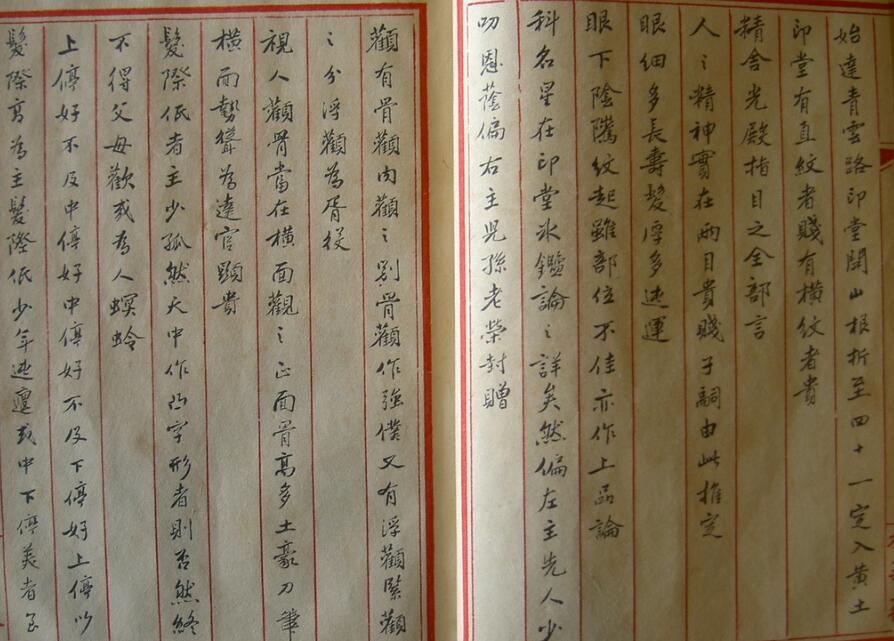 始達青雲路印堂開山根折至四十一定入黃土
印堂有直紋者賤有橫紋者貴
精舍光殿指目之全部言
人之精神實在兩目貴賤子嗣由此推定
眼細多長壽髮厚多迍運
眼下陰騭紋起雖部位不佳亦作上品論
科名星在印堂冰鑑論之詳矣然偏左主先人少
叨恩蔭偏右主兒孫老榮封贈
顴有骨顴肉顴之別骨顴作強僕又有浮顴緊顴
之分浮顴為胥役
視人顴骨當在橫面觀之正面骨高多土豪刀筆
橫面勢聳為達官顯貴
髮際低者主少孤然大中作凸字形者則否然終
不得父母歡或為人螟蛉
上停好不及中停好中停好不及下停好上停以
髮際高為主髮際低少年迍邅或中下停美者